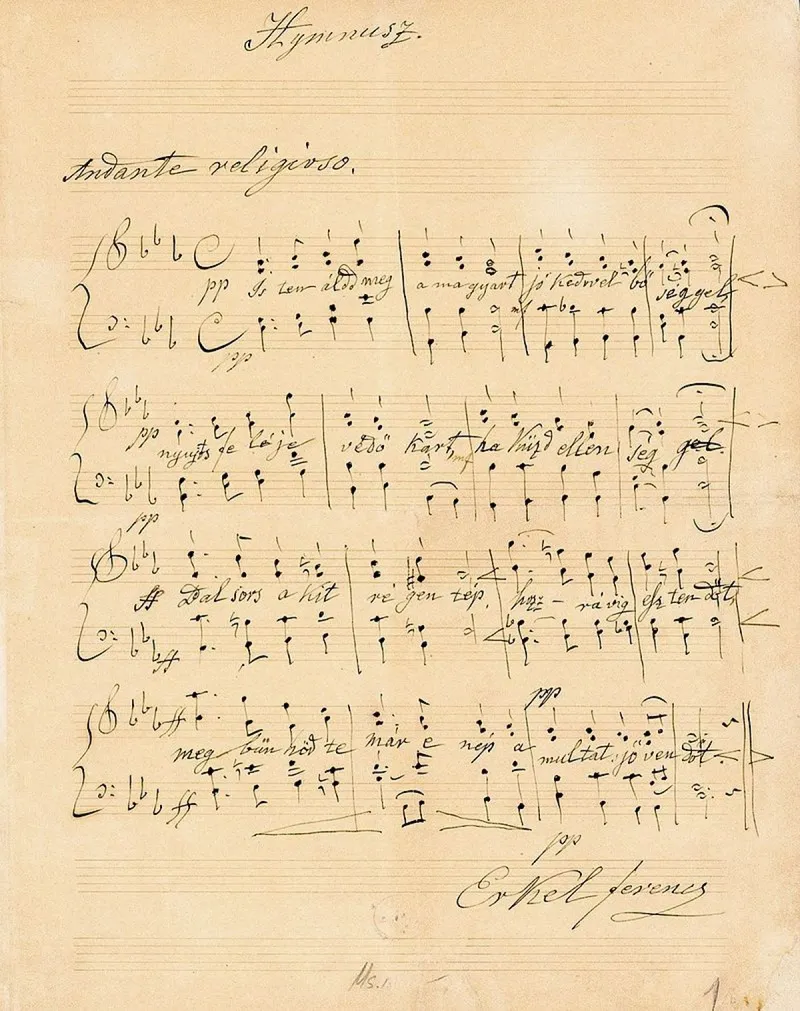 Hymnusz.
Andante religioso.
pp Is ten áldd meg a magyart jó kedvvel bő séggel,
mf
pp
pp nyujts fe léje védő kart, mf ha küzd ellen ség gel.
pp
ff Bal sors a kit ré gen tép, hozz - rá víg esz ten dőt,
ff
pp
ff meg bűn hőd te már e nép a multat jöven dőt.
ff
pp
Erkel ferencz
Ms. 1
1